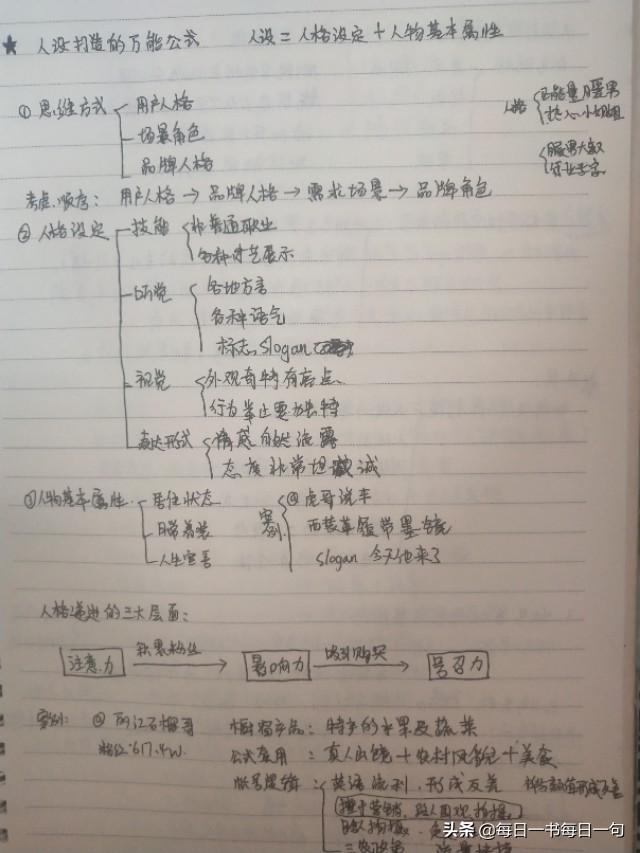 ★ 人设打造的万能公式 人设=人格设定+人物基本属性
① 思维方式 用户人格
场景角色
品牌人格
人格 正能量暖男
热心小姐姐
腹黑大叔
考虑顺序: 用户人格→品牌人格→需求场景→品牌角色
② 人格设定 技能 非普通职业
各种才艺展示
听觉 各地方言
各种语气
标志slogan
视觉 外观有特有亮点、
行为举止要独特
表达形式 情感自然流露
态度非常坦诚
③ 人物基本属性 居住状态
日常着装
人生宣言
案例 @虎哥说车
西装革履带墨镜
slogan 今天他来了
人格递进的三大层面:
注意力 积累粉丝 影响力 吸引购买 号召力
案例: @丽江石榴哥 橱窗产品: 特产的水果及蔬菜
粉丝:617.4W 公式套用: 真人出镜+农村风貌+美食
账号逻辑: 英语流利,形成反差
擅于营销,路人围观拍摄
头条 @每日一书每日一句